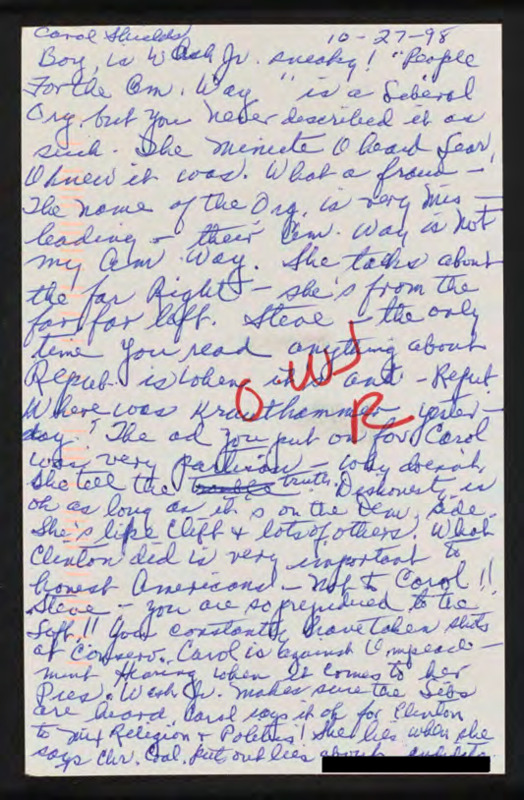 Carol Shields 10-27-98
Boy, is Wash Jr. sneaky! "People
For the Am. Way" is a Liberal
Org. but you never described it as
such. The minute I heard Lear,
I knew it was. What a fraud -
The name of the Org. is very mis-
leading - their Am. Way is not
my Am. Way. She talks about
the far Right - she's from the
far far left. Steve - the only
time you read anything about
Repub. is when it's anti-Repub.
Where was Krauthammer yester-
day? The ad you put on for Carol
was very partisan - why doesn't
she tell the truth. Dishonesty is
ok as long as it's on the Dem. side.
She's like Clift & lots of others. What
Clinton did is very important to
honest Americans - not to Carol!!
Steve - you are so prejudiced to the
Left!! You constantly have taken shots
at Conserv. Carol is against Impeach-
ment Hearing when it comes to her
Pres. Wash Jr. makes sure the Libs
are heard. Carol says it ok for Clinton
to mix Religion & Politics! She lies when she
says Chr. Coal. put out lies about
OWJ
R